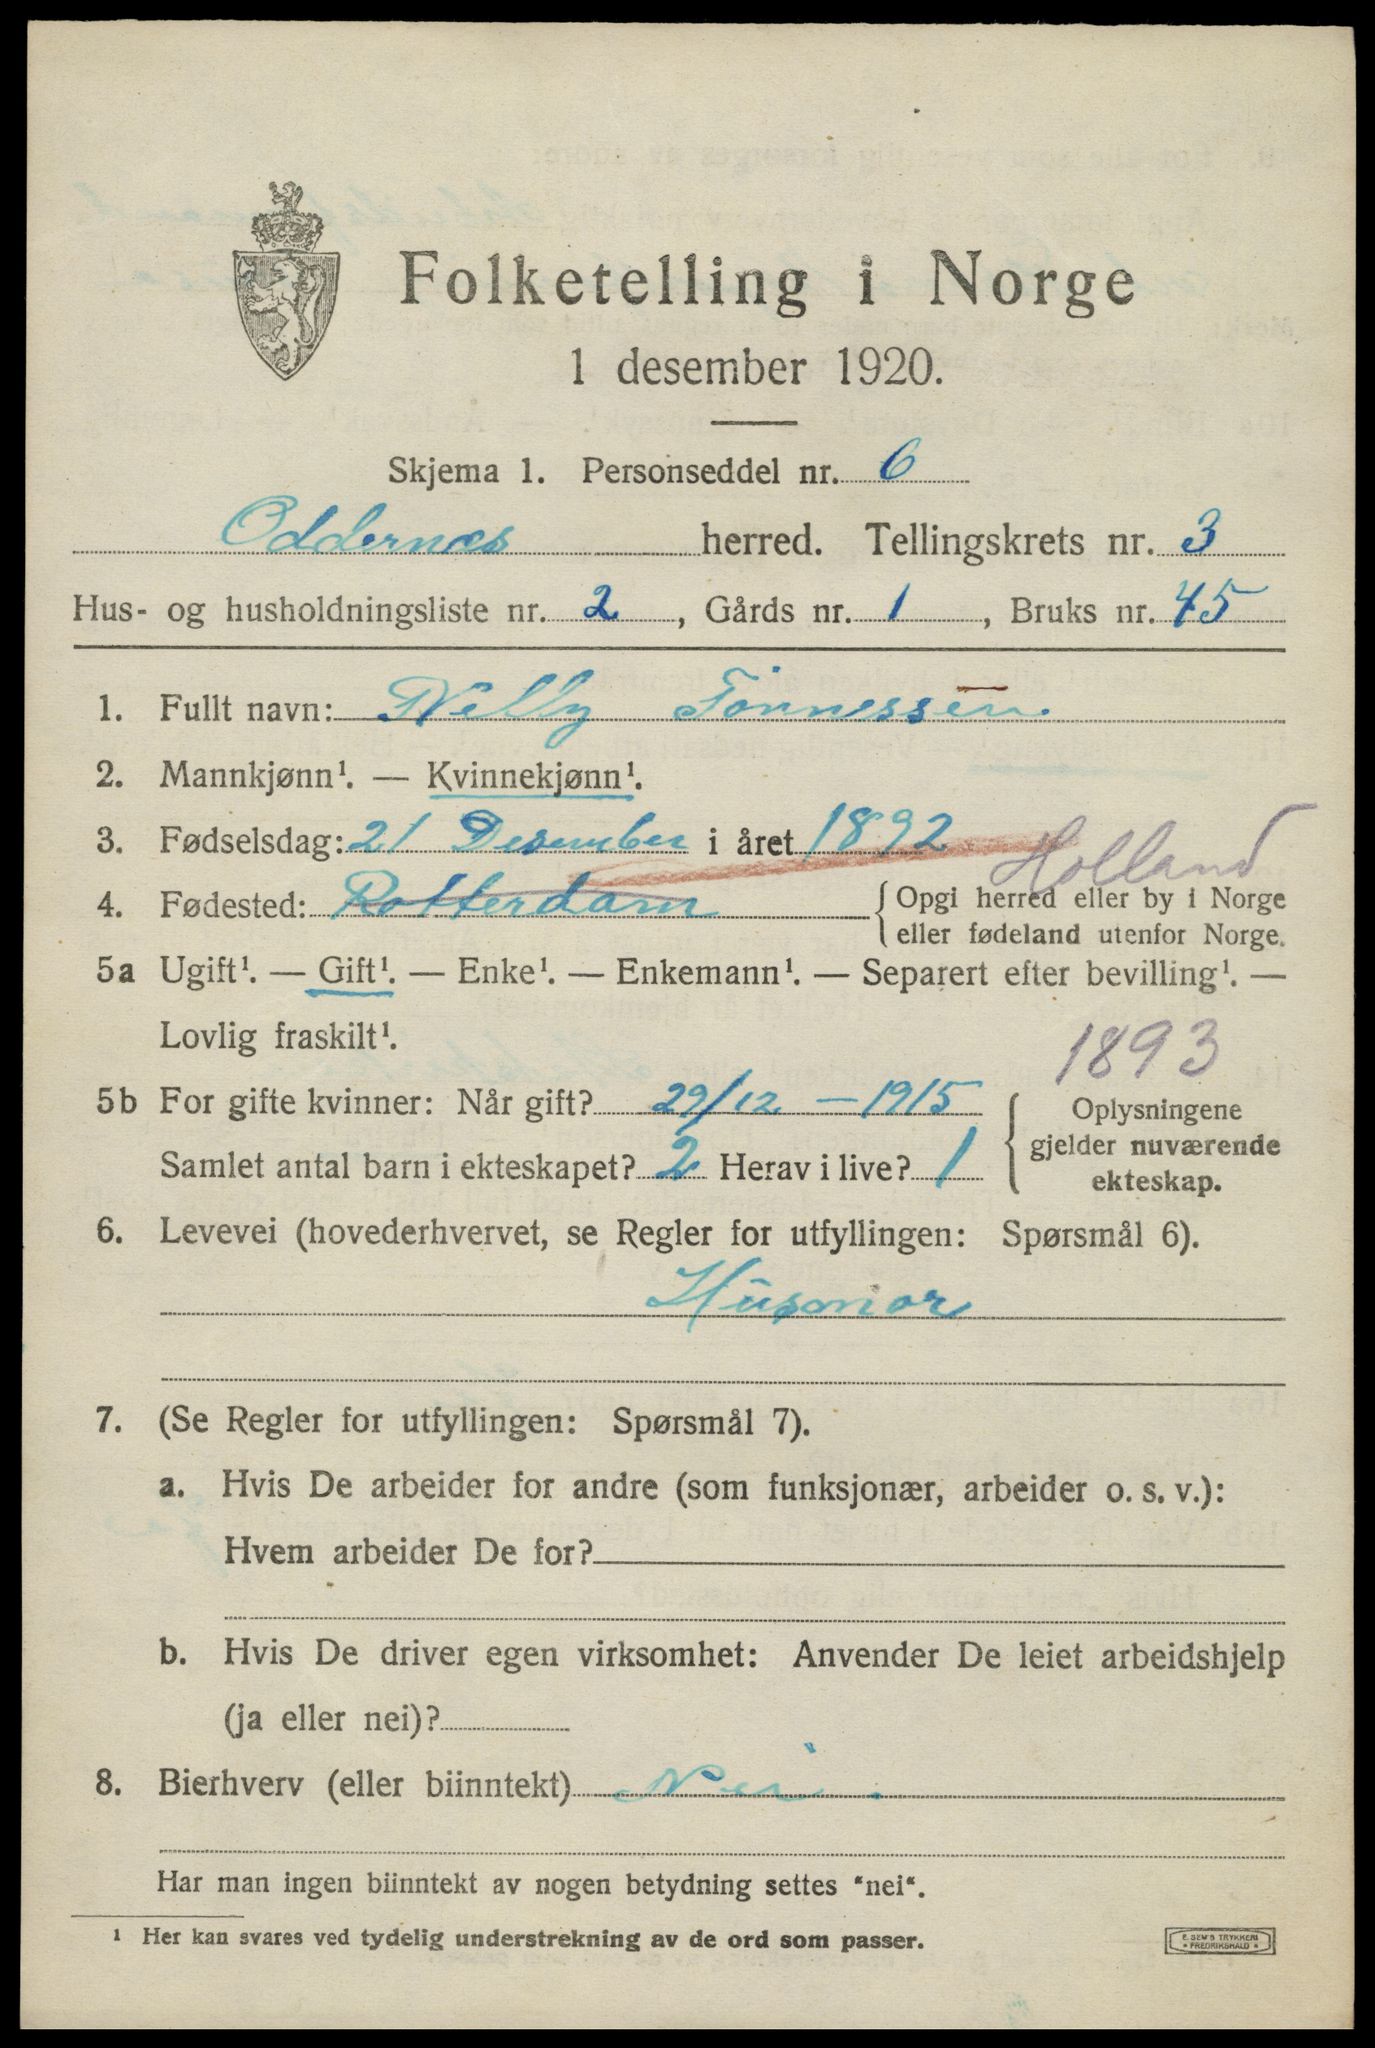 Folketelling i Norge
1 desember 1920.
Skjema 1. Personseddel nr. 6
Oddernes herred. Tellingskrets nr. 3
Hus- og husholdningsliste nr. 2, Gårds nr. 1, Bruks nr. 45
1. Fullt navn: Nelly Tönnessen
2. Mannkjønn¹. — Kvinnekjønn¹.
3. Fødselsdag: 21 Desember i året 1892
Holland
4. Fødested: Rotterdam { Opgi herred eller by i Norge
eller fødeland utenfor Norge.
5a Ugift¹. — Gift¹. — Enke¹. — Enkemann¹. — Separert efter bevilling¹. —
Lovlig fraskilt¹.
1893
5b For gifte kvinner: Når gift? 29/12 — 1915
Samlet antal barn i ekteskapet? 2 Herav i live? 1
Oplysningene
gjelder nuværende
ekteskap.
6. Levevei (hovederhvervet, se Regler for utfyllingen: Spørsmål 6).
Husmor
7. (Se Regler for utfyllingen: Spørsmål 7).
a. Hvis De arbeider for andre (som funksjonær, arbeider o. s. v.):
Hvem arbeider De for?
b. Hvis De driver egen virksomhet: Anvender De leiet arbeidshjelp
(ja eller nei)?
8. Bierhverv (eller biinntekt) Nei.
Har man ingen biinntekt av nogen betydning settes "nei".
¹ Her kan svares ved tydelig understrekning av de ord som passer.
E. SEM'S TRYKKERI
* FREDRIKSHALD *